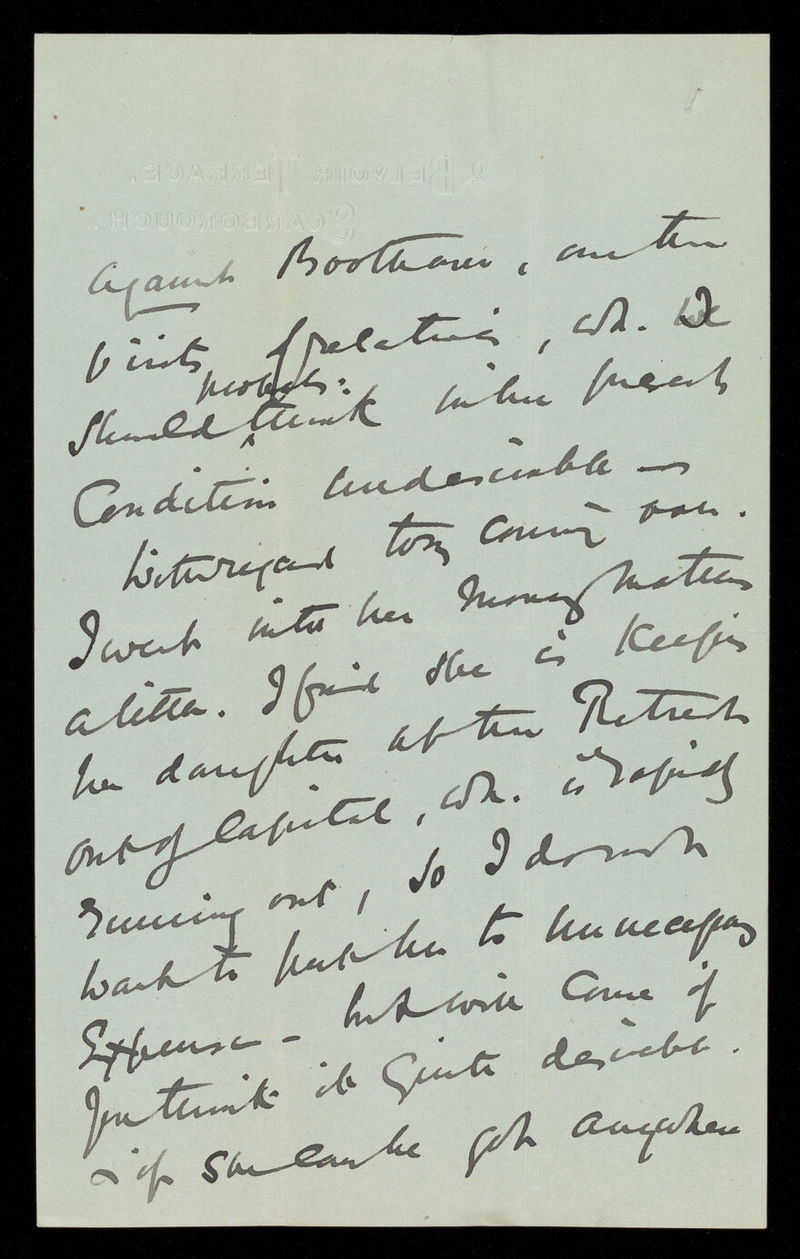 2, BELVOIR TERRACE,
SCARBOROUGH.
against Bootham, are the
visits of relatives, wh. I
should probably: think in her present
Condition undesirable —
With regard to my coming over.
I went into her money matters
a little. I find she is keeping
her daughter at the Retreat
out of Capital, wh. is rapidly
running out, so I do not
want to put her to unnecessary
Expense – but will come if
you think it quite desirable.
& if she can be got anywhere